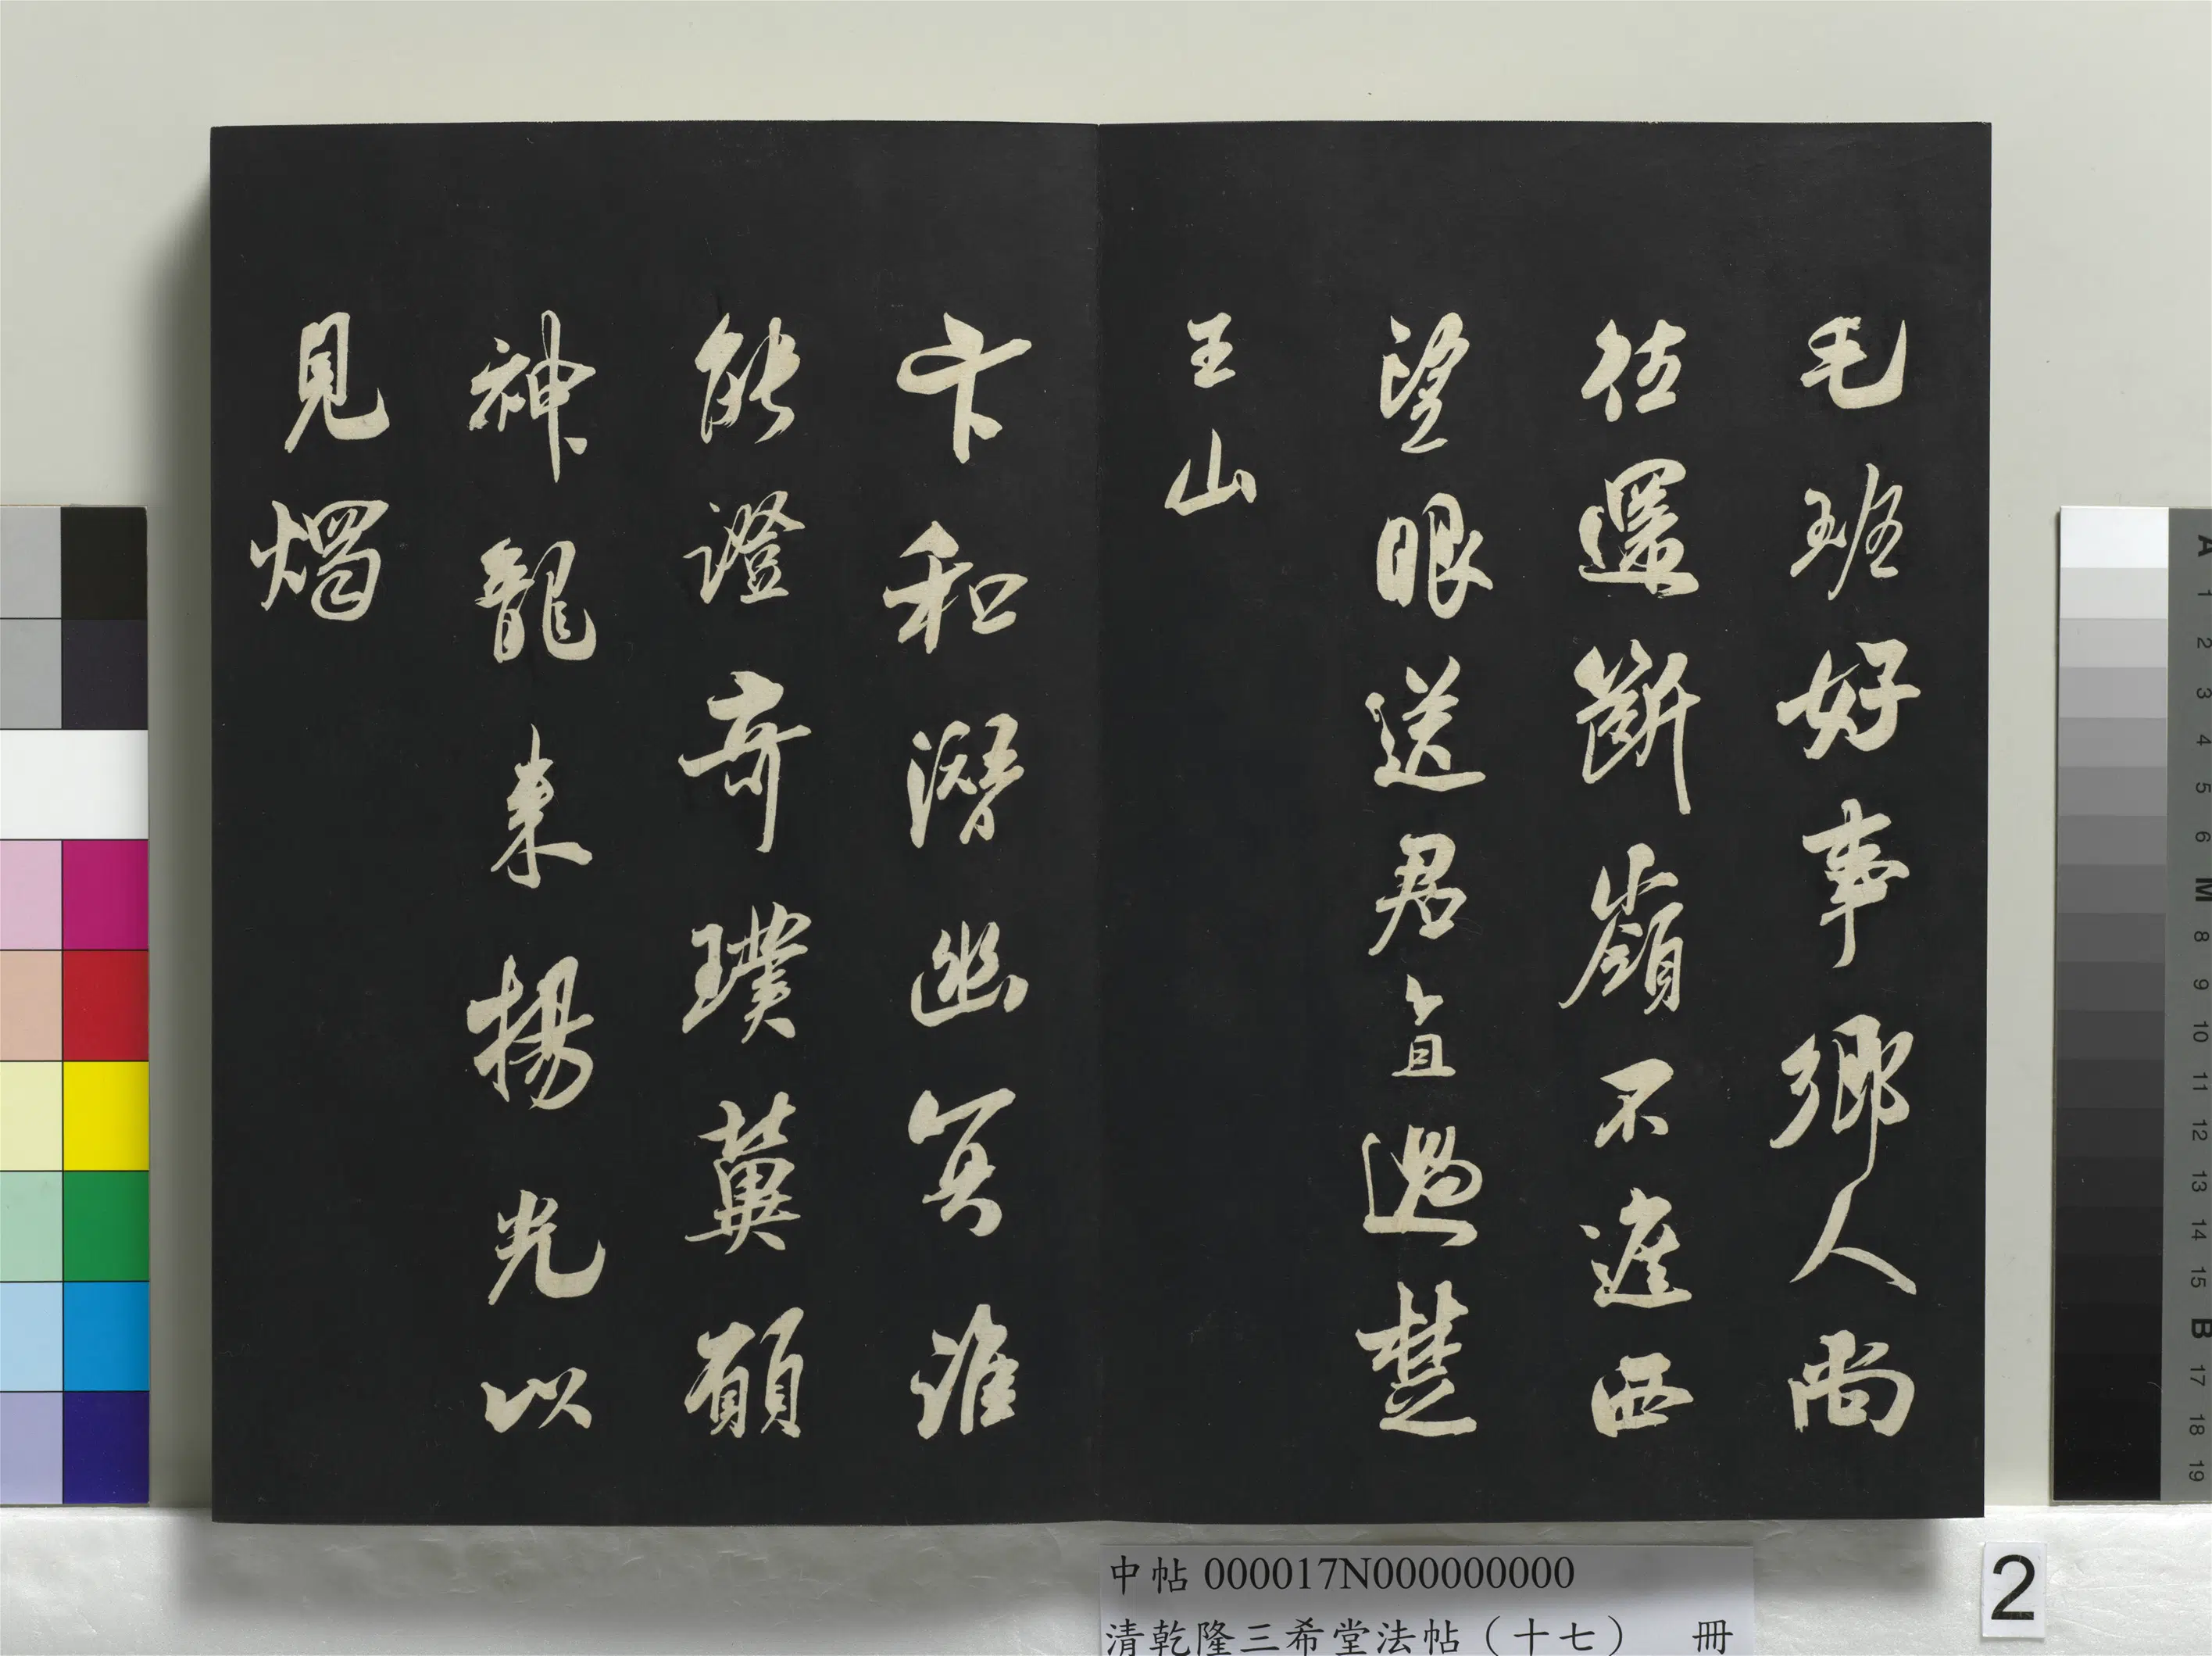 毛班好事鄉人尚
估還斷嶺不遮西
望眼送君直過楚
王山
卞和潛幽冥誰
能證奇璞冀願
神龍来揚光以
見燭
中帖 000017N000000000
清乾隆三希堂法帖（十七） 冊
2
A 1 2 3 4 5 6 M 8 9 10 11 12 13 14 15 B 17 18 19